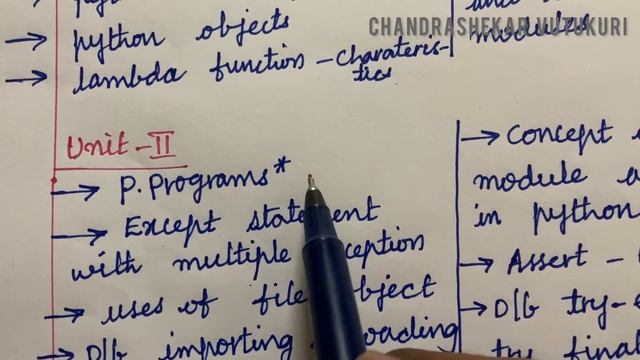 CHANDRASHEKAR VUTUKURI
→ python objects
modules
→ lambda function - Charateris-
tics
Unit - II
→ P. Programs*
→ Except statement
with multiple
→ uses of file object
→ D/b importing
→ Concept
module
in python
→ Assert -
→ D/b try-
try final